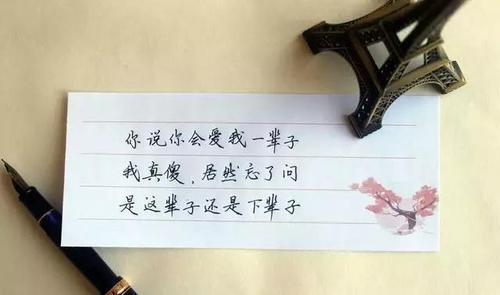 你说你会爱我一辈子
我真傻，居然忘了问
是这辈子还是下辈子